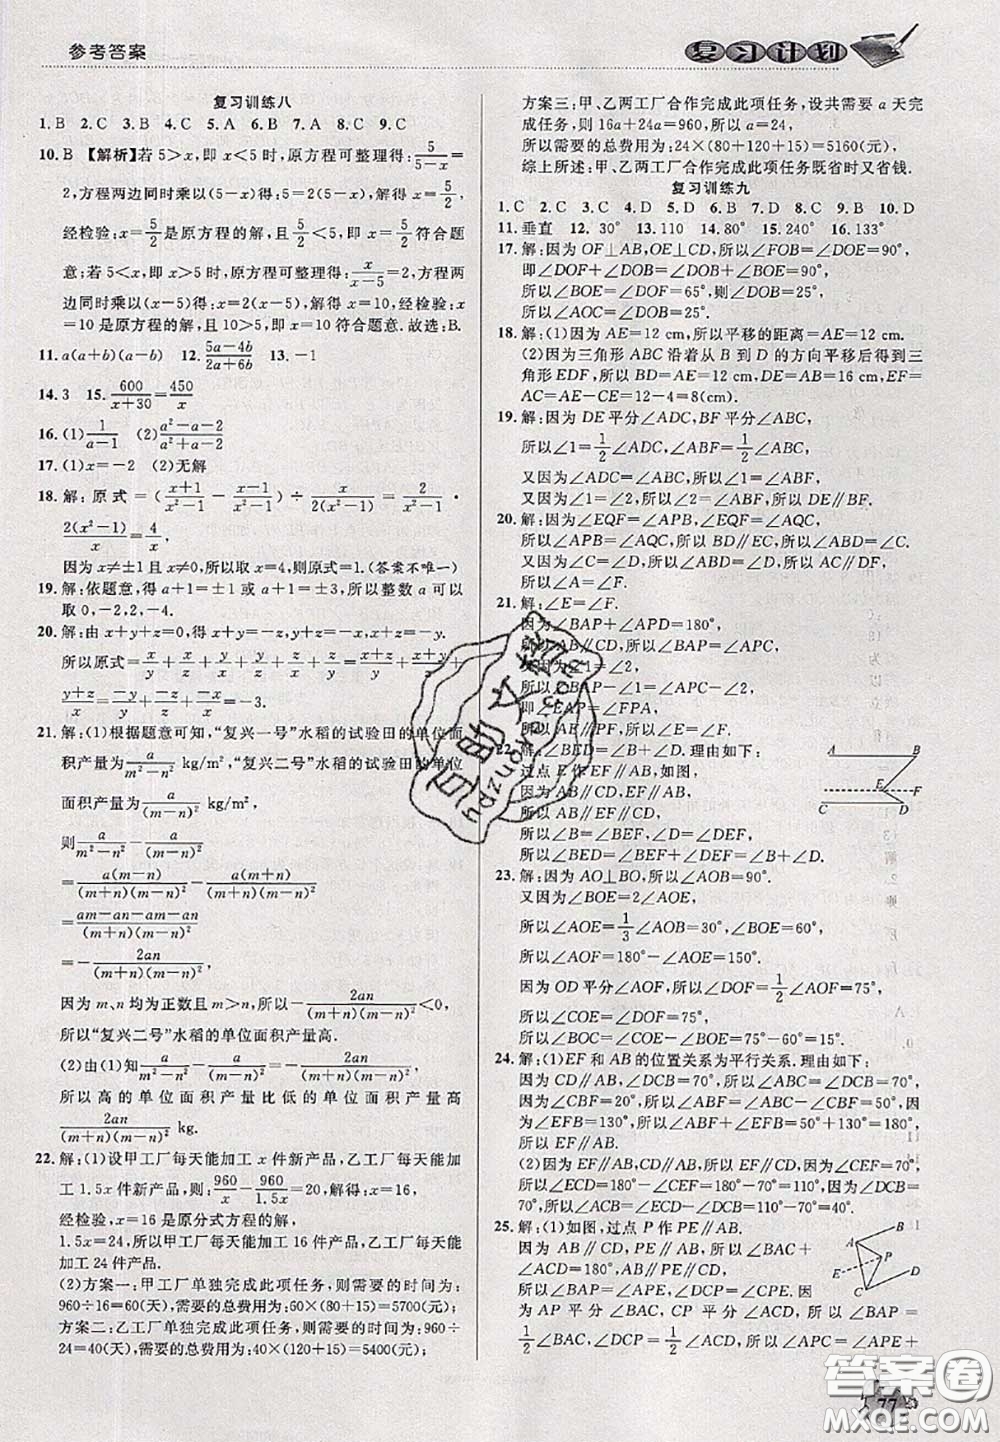 参考答案
复习计划
复习训练八
1. B 2. C 3. C 4. C 5. A 6. B 7. A 8. C 9. C
10. B 【解析】若5>x,即x<5时,原方程可整理得:5/(5-x)=
2,方程两边同时乘以(5-x)得:5=2(5-x),解得x=5/2,
经检验:x=5/2是原方程的解,且5>5/2,即x=5/2符合题
意;若5<x,即x>5时,原方程可整理得:x/(x-5)=2,方程两
边同时乘以(x-5)得:x=2(x-5),解得:x=10,经检验:x
=10是原方程的解,且10>5,即x=10符合题意.故选:B.
11. a(a+b)(a-b) 12. (5a-4b)/(2a+6b) 13. -1
14. 3 15. 600/(x+30)=450/x
16. (1)1/(a-1) (2)(a²-a-2)/(a²+a-2)
17. (1)x=-2 (2)无解
18. 解:原式=((x+1)/(x²-1)-(x-1)/(x²-1))÷x/(2(x²-1))=2/(x²-1)·
2(x²-1)/x=4/x,
因为x≠±1且x≠0,所以取x=4,则原式=1.(答案不唯一)
19. 解:依题意,得a+1=±1或a+1=±3,所以整数a可以
取0,-2,2,-4.
20. 解:由x+y+z=0,得x+y=-z,y+z=-x,x+z=-y.
所以原式=x/y+x/z+y/x+y/z+z/x+z/y=
(y+z)/x+(x+z)/y+(x+y)/z=-x/x-y/y-z/z=-3.
21. 解:(1)根据题意可知,“复兴一号”水稻的试验田的单位面
积产量为a/(m²-n²) kg/m²,“复兴二号”水稻的试验田的单位
面积产量为a/(m-n)² kg/m²,
则a/(m²-n²)-a/(m-n)²
=a(m-n)/((m+n)(m-n)²)-a(m+n)/((m+n)(m-n)²)
=(am-an-am-an)/((m+n)(m-n)²)
=-2an/((m+n)(m-n)²),
因为m、n均为正数且m>n,所以-2an/((m+n)(m-n)²)<0,
所以“复兴二号”水稻的单位面积产量高.
(2)由(1)知a/(m²-n²)-a/(m-n)²=-2an/((m+n)(m-n)²),
所以高的单位面积产量比低的单位面积产量高
2an/((m+n)(m-n)²) kg.
22. 解:(1)设甲工厂每天能加工x件新产品,乙工厂每天能加
工1.5x件新产品,则:960/x-960/1.5x=20,解得:x=16,
经检验,x=16是原分式方程的解,
1.5x=24,所以甲工厂每天能加工16件产品,乙工厂每天能加工
24件产品.
(2)方案一:甲工厂单独完成此项任务,则需要的时间为:
960÷16=60(天),需要的总费用为:60×(80+15)=5700(元);
方案二:乙工厂单独完成此项任务,则需要的时间为:960÷
24=40(天),需要的总费用为:40×(120+15)=5400(元);
方案三:甲、乙两工厂合作完成此项任务,设共需要a天完
成任务,则16a+24a=960,所以a=24,所以需要的总费用为:
24×(80+120+15)=5160(元).
综上所述:甲、乙两工厂合作完成此项任务既省时又省钱.
复习训练九
1. C 2. C 3. C 4. C 5. D 6. B 7. D 8. C 9. B 10. D
11. 垂直 12. 30° 13. 110 14. 80° 15. 240° 16. 133°
17. 解:因为OF⊥AB,OE⊥CD,所以∠FOB=∠DOE=90°,
即∠DOF+∠DOB=∠DOB+∠BOE=90°,
所以∠BOE=∠DOF=65°,则∠DOB=25°,
所以∠AOC=∠DOB=25°.
18. 解:(1)因为AE=12 cm,所以平移的距离=AE=12 cm.
(2)因为三角形ABC沿着从B到D的方向平移后得到三
角形EDF,所以BC=DF,AC=EF,AE=BD.所以EF=
AC=AE-CE=12-4=8(cm).
19. 解:因为DE平分∠ADC,BF平分∠ABC,
所以∠1=1/2∠ADC,∠ABF=1/2∠ABC,
又因为∠ADC=∠ABC,所以∠1=∠ABF,
又因为∠1=∠2,所以∠2=∠ABF,所以DE∥BF.
20. 解:因为∠EQF=∠APB,∠EQF=∠AQC,
所以∠APB=∠AQC,所以BD∥EC,所以∠ABD=∠C.
又因为∠C=∠D,所以∠ABD=∠D,所以AC∥DF.
所以∠A=∠F.
21. 解:∠E=∠F.
因为∠BAP+∠APD=180°,
所以AB∥CD,所以∠BAP=∠APC,
又因为∠1=∠2,
所以∠BAP-∠1=∠APC-∠2,
即∠EAP=∠FPA,
所以AE∥PF,所以∠E=∠F.
22. 解:∠BED=∠B+∠D.理由如下:
过点E作EF∥AB,如图,
因为AB∥CD,EF∥AB,
所以AB∥EF∥CD,
所以∠B=∠BEF,∠D=∠DEF,
所以∠BED=∠BEF+∠DEF=∠B+∠D.
A B
E F
C D
23. 解:因为AO⊥BO,所以∠AOB=90°.
又因为∠BOE=2∠AOE,
所以∠AOE=1/3∠AOB=30°,
所以∠AOF=180°-∠AOE=150°.
因为OD平分∠AOF,所以∠DOF=1/2∠AOF=75°,
所以∠COE=∠DOF=75°,
所以∠BOC=∠BOE-∠COE=75°-60°=15°.
24. 解:(1)EF和AB的位置关系为平行关系.理由如下:
因为CD∥AB,∠DCB=70°,所以∠DCB=∠ABC=70°,
因为∠CBF=20°,所以∠ABF=∠ABC-∠CBF=50°,
因为∠EFB=130°,所以∠ABF+∠EFB=180°,
所以EF∥AB.
(2)因为EF∥AB,CD∥AB,所以EF∥CD.因为∠CEF=70°,
所以∠ECD=180°-∠CEF=180°-70°=110°,因为∠DCB=70°,
所以∠ACB=∠ECD-∠DCB=110°-70°=40°.
25. 解:(1)如图,过点P作PE∥AB.
因为AB∥CD,PE∥AB,所以∠BAC+
∠ACD=180°,所以AB∥PE∥CD,
所以∠BAP=∠APE,∠DCP=∠CPE.因
为AP平分∠BAC,CP平分∠ACD,所以∠BAP=
1/2∠BAC,∠DCP=1/2∠ACD,所以∠APC=∠APE+
A B
E P
C D
百助文档
bonzpy.com
答案圈
MXQE.COM
77